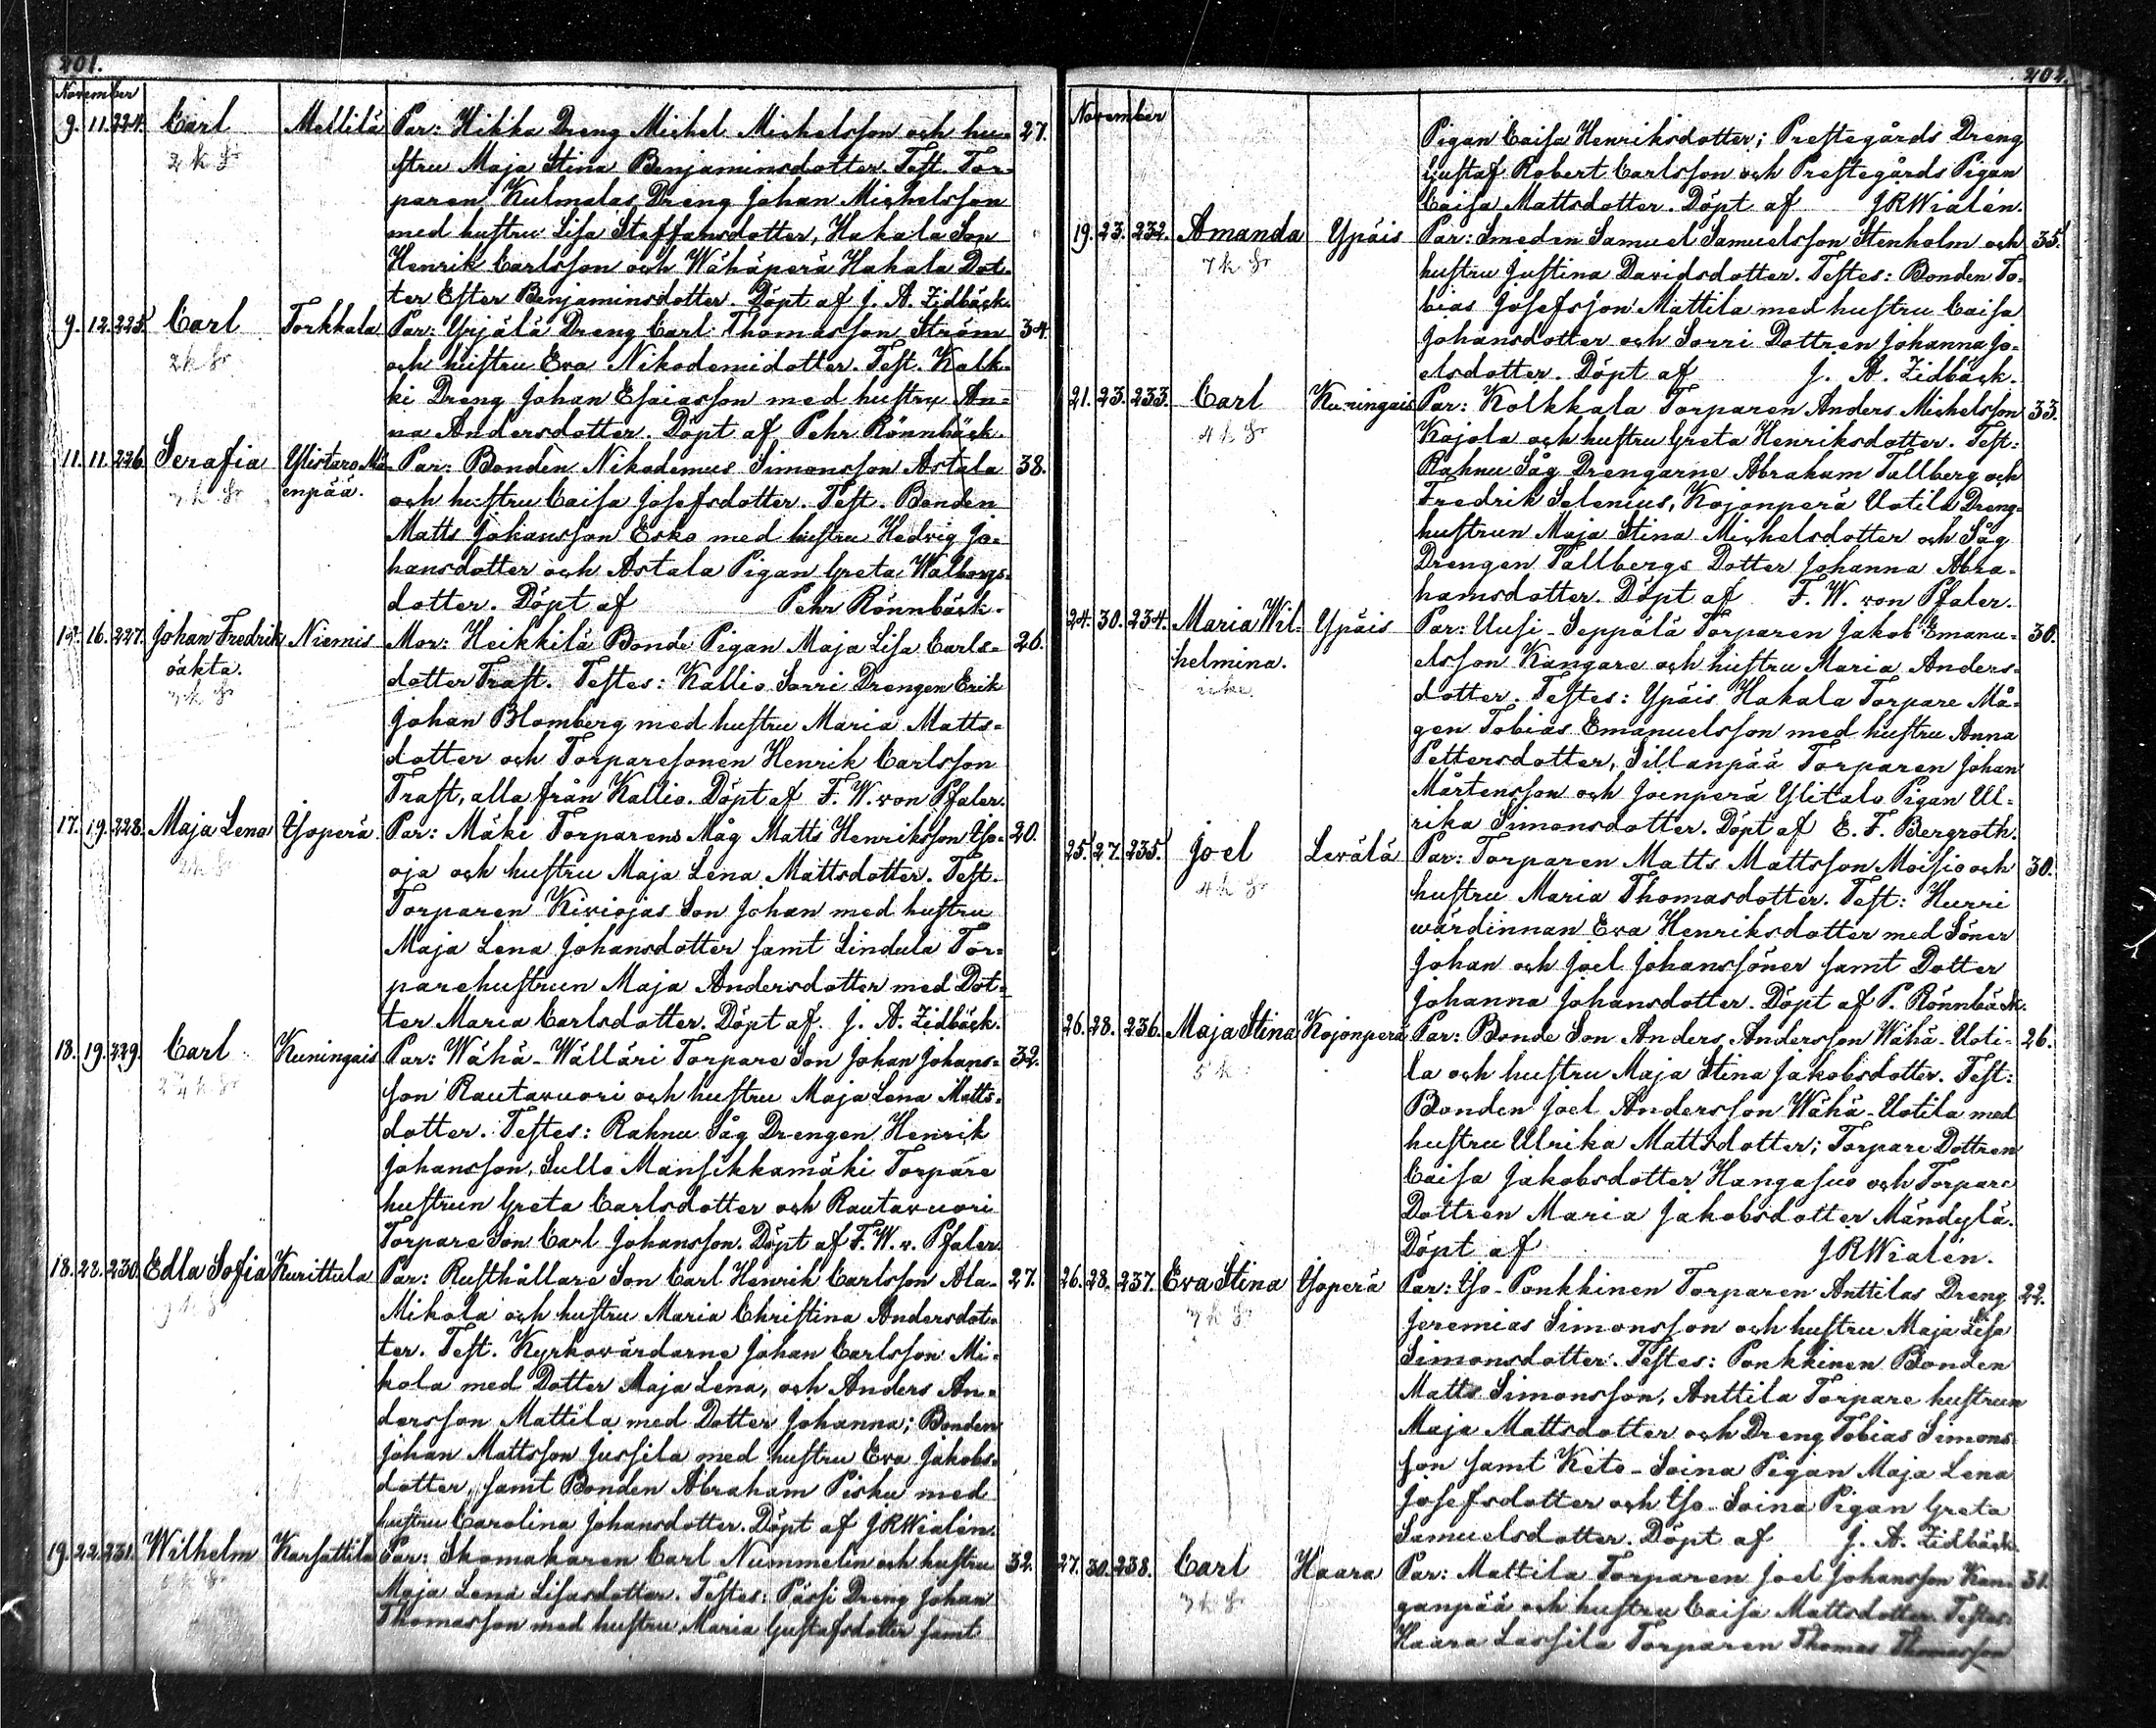 201.
November
9. 11. 224. Carl Mellilä Par: Hikka Dreng Michel Michelsson och hu= 27.
2 k Sr stru Maja Stina Benjaminsdotter. Test. Tor=
paren Kulmalas Dreng Johan Michelsson
med hustru Lisa Steffansdotter, Hakala Son
Henrik Carlsson och Wähäperä Hakala Dot=
ter Ester Benjaminsdotter. Döpt af J. A. Zidbäck.
9. 12. 225. Carl Torkkala Par: Yrjälä Dreng Carl Thomasson Ström 34.
2k Sr och hustru Eva Nikodemidotter. Test. Kalk=
ki Dreng Johan Esaiasson med hustru An=
na Andersdotter. Döpt af Pehr Rönnbäck.
11. 11. 226. Serafia Ylistaro Mä= Par: Bonden Nikodemus Simonsson Astala 38.
7 k Sr enpää. och hustru Caisa Josefsdotter. Test. Bonden
Matts Johansson Esko med hustru Hedvig Jo=
hansdotter och Astala Pigan Greta Walborgs=
dotter. Döpt af Pehr Rönnbäck.
15. 16. 227. Johan Fredrik Niemis Mor: Heikkilä Bonde Pigan Maja Lisa Carls= 26.
oäkta. dotter Traft. Testes: Kallio Sorri Drengen Erik
3 k Sr Johan Blomberg med hustru Maria Matts=
dotter och Torparesonen Henrik Carlsson
Traft, alla från Kallio. Döpt af F. W. von Pfaler.
17. 19. 228. Maja Lena Isoperä. Par: Mäki Torparens Måg Matts Henriksson Iso= 20.
2k Sr oja och hustru Maja Lena Mattsdotter. Test.
Torparen Kiviojas Son Johan med hustru
Maja Lena Johansdotter samt Lindula Tor=
parehustrun Maja Andersdotter med Dot=
ter Maria Carlsdotter. Döpt af. J. A. Zidbäck.
18. 19. 229. Carl Kuningais Par: Wähä-Wälläri Torpare Son Johan Johans= 32.
2 1/4 k Sr son Rautavuori och hustru Maja Lena Matts=
dotter. Testes: Rahnu Såg Drengen Henrik
Johansson, Sullo Mansikkamäki Torpare
hustrun Greta Carlsdotter och Rautavuori
Torpare Son Carl Johansson. Döpt af F. W. v. Pfaler.
18. 22. 230. Edla Sofia Kurittula Par: Rusthållare Son Carl Henrik Carlsson Ala= 27.
Mikola och hustru Maria Christina Andersdot=
ter. Test. Kyrkovärdarne Johan Carlsson Mi=
kola med Dotter Maja Lena, och Anders An=
dersson Mattila med Dotter Johanna; Bonden
Johan Mattsson Jussila med hustru Eva Jakobs=
dotter, samt Bonden Abraham Pisku med
hustru Carolina Johansdotter. Döpt af JRWialén.
19. 22. 231. Wilhelm Karsattila Par: Skomakaren Carl Nummelin och hustru 32.
Maja Lena Lisasdotter. Testes: Pässi Dreng Johan
Thomasson med hustru Maria Gustafsdotter samt
202.
November
Pigan Caisa Henriksdotter; Prestegårds Dreng
Gustaf Robert Carlsson och Prestegårds Pigan
Caisa Mattsdotter. Döpt af JRWialén.
19. 23. 232. Amanda Ypäis Par: Smeden Samuel Samuelsson Stenholm och 35.
7 k Sr hustru Justina Davidsdotter. Testes: Bonden To=
bias Josefsson Mattila med hustru Caisa
Johansdotter och Sorri Dottren Johanna Jo=
elsdotter. Döpt af J. A. Zidbäck.
21. 23. 233. Carl Kuningais Par: Kolkkala Torparen Anders Michelsson 33.
4 k Sr Kojola och hustru Greta Henriksdotter. Test:
Rahnu Såg Drengarne Abraham Tallberg och
Fredrik Selenius, Kojonperä Uotila Dreng=
hustrun Maja Stina Michelsdotter och Såg
Drengen Tallbergs Dotter Johanna Abra=
hamsdotter. Döpt af F. W. von Pfaler.
24. 30. 234. Maria Wil= Ypäis Par: Uusi-Seppälä Torparen Jakob Emanu= 30.
helmina. elsson Kangare och hustru Maria Anders=
icke dotter. Testes: Ypäis Hakala Torpare Må=
gen Tobias Emanuelsson med hustru Anna
Pettersdotter, Sillanpää Torparen Johan
Mårtensson och Joenperä Ylitalo Pigan Ul=
rika Simonsdotter. Döpt af E. F. Bergroth.
25. 27. 235. Joel Levälä Par: Torparen Matts Mattsson Moisio och 30.
4 k Sr hustru Maria Thomasdotter. Test: Hurri
wärdinnan Eva Henriksdotter med Söner
Johan och Joel Johanssöner samt Dotter
Johanna Johansdotter. Döpt af P. Rönnbäck.
26. 28. 236. Maja Stina Kojonperä Par: Bonde Son Anders Andersson Wähä-Uoti= 26.
5 k la och hustru Maja Stina Jakobsdotter. Test:
Bonden Joel Andersson Wähä-Uotila med
hustru Ulrika Mattsdotter; Torpare Dottren
Caisa Jakobsdotter Hangasuo och Torpare
Dottren Maria Jakobsdotter Mändylä.
Döpt af JRWialén.
26. 28. 237. Eva Stina Isoperä Par: Iso-Ponkkinen Torparen Anttilas Dreng 22.
7 k Sr Jeremias Simonsson och hustru Maja Lisa
Simonsdotter. Testes: Ponkkinen Bonden
Matts Simonsson, Anttila Torpare hustrun
Maja Mattsdotter och Dreng Tobias Simons
son samt Keto-Soina Pigan Maja Lena
Josefsdotter och Iso-Soina Pigan Greta
Samuelsdotter. Döpt af J. A. Zidbäck.
27. 30. 238. Carl Haara Par: Mattila Torparen Joel Johansson Kan= 31.
3 k Sr ganpää och hustru Caisa Mattsdotter. Testes:
Haara Lassila Torparen Thomas Thomasson